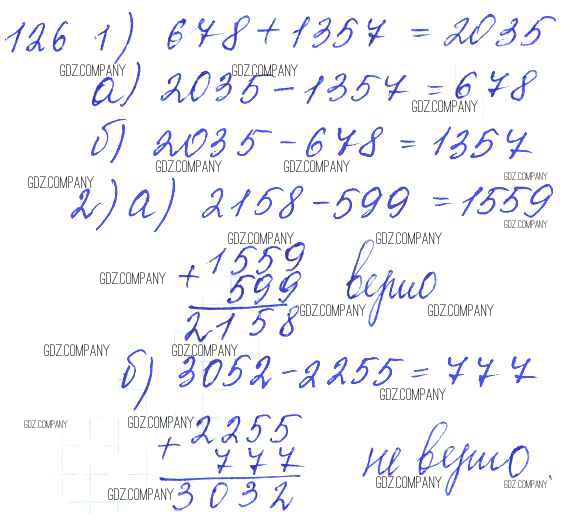 126 1) 678 + 1357 = 2035
GDZ.COMPANY GDZ.COMPANY
а) 2035 - 1357 = 678
GDZ.COMPANY
б) 2035 - 678 = 1357
GDZ.COMPANY GDZ.COMPANY GDZ.COMPANY
GDZ.COMPANY
2) а) 2158 - 599 = 1559
GDZ.COMPANY
GDZ.COMPANY GDZ.COMPANY
+ 1559
GDZ.COMPANY
599 верно
GDZ.COMPANY GDZ.COMPANY
2158
GDZ.COMPANY GDZ.COMPANY
б) 3052 - 2255 = 777
GDZ.COMPANY
GDZ.COMPANY GDZ.COMPANY
+ 2255
777 не верно
GDZ.COMPANY GDZ.COMPANY GDZ.COMPANY
3032